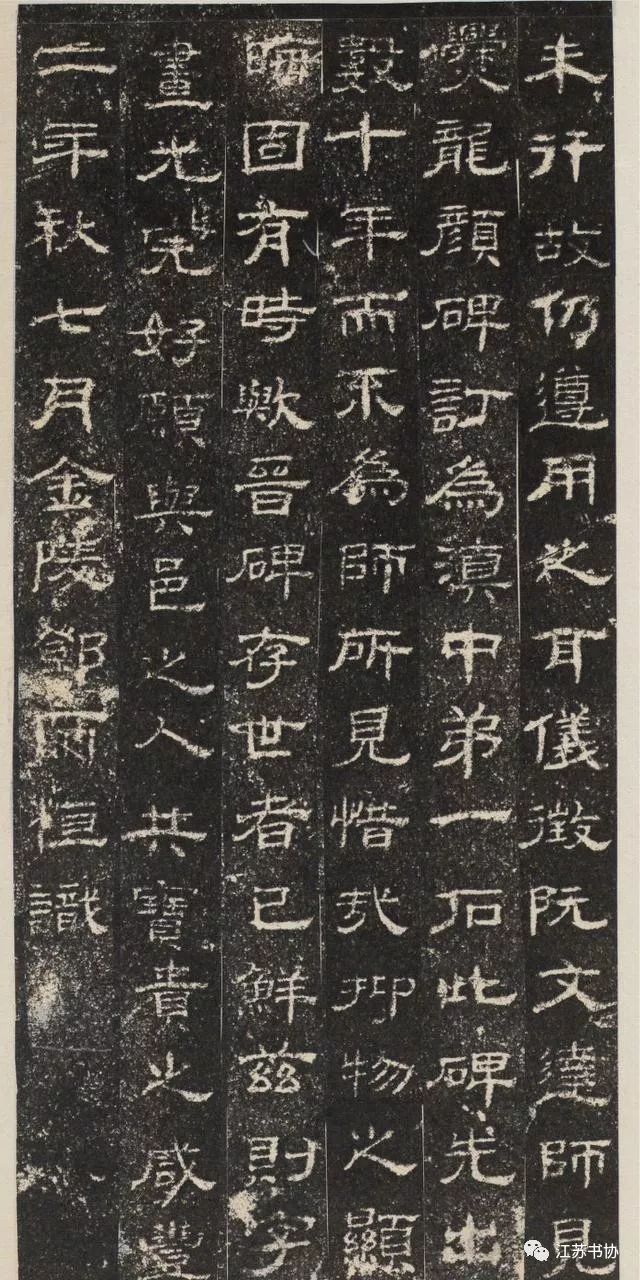 未行故仍遵用之耳儀徵阮文達師見
爨龍顔碑訂為滇中弟一石此碑先出
數十年而不為師所見惜哉抑物之顯
晦固有時歟晉碑存世者已鮮茲則字
畫尤完好願與邑之人共寶貴之咸豐
二年秋七月金陵鄧爾恒識
江苏书协